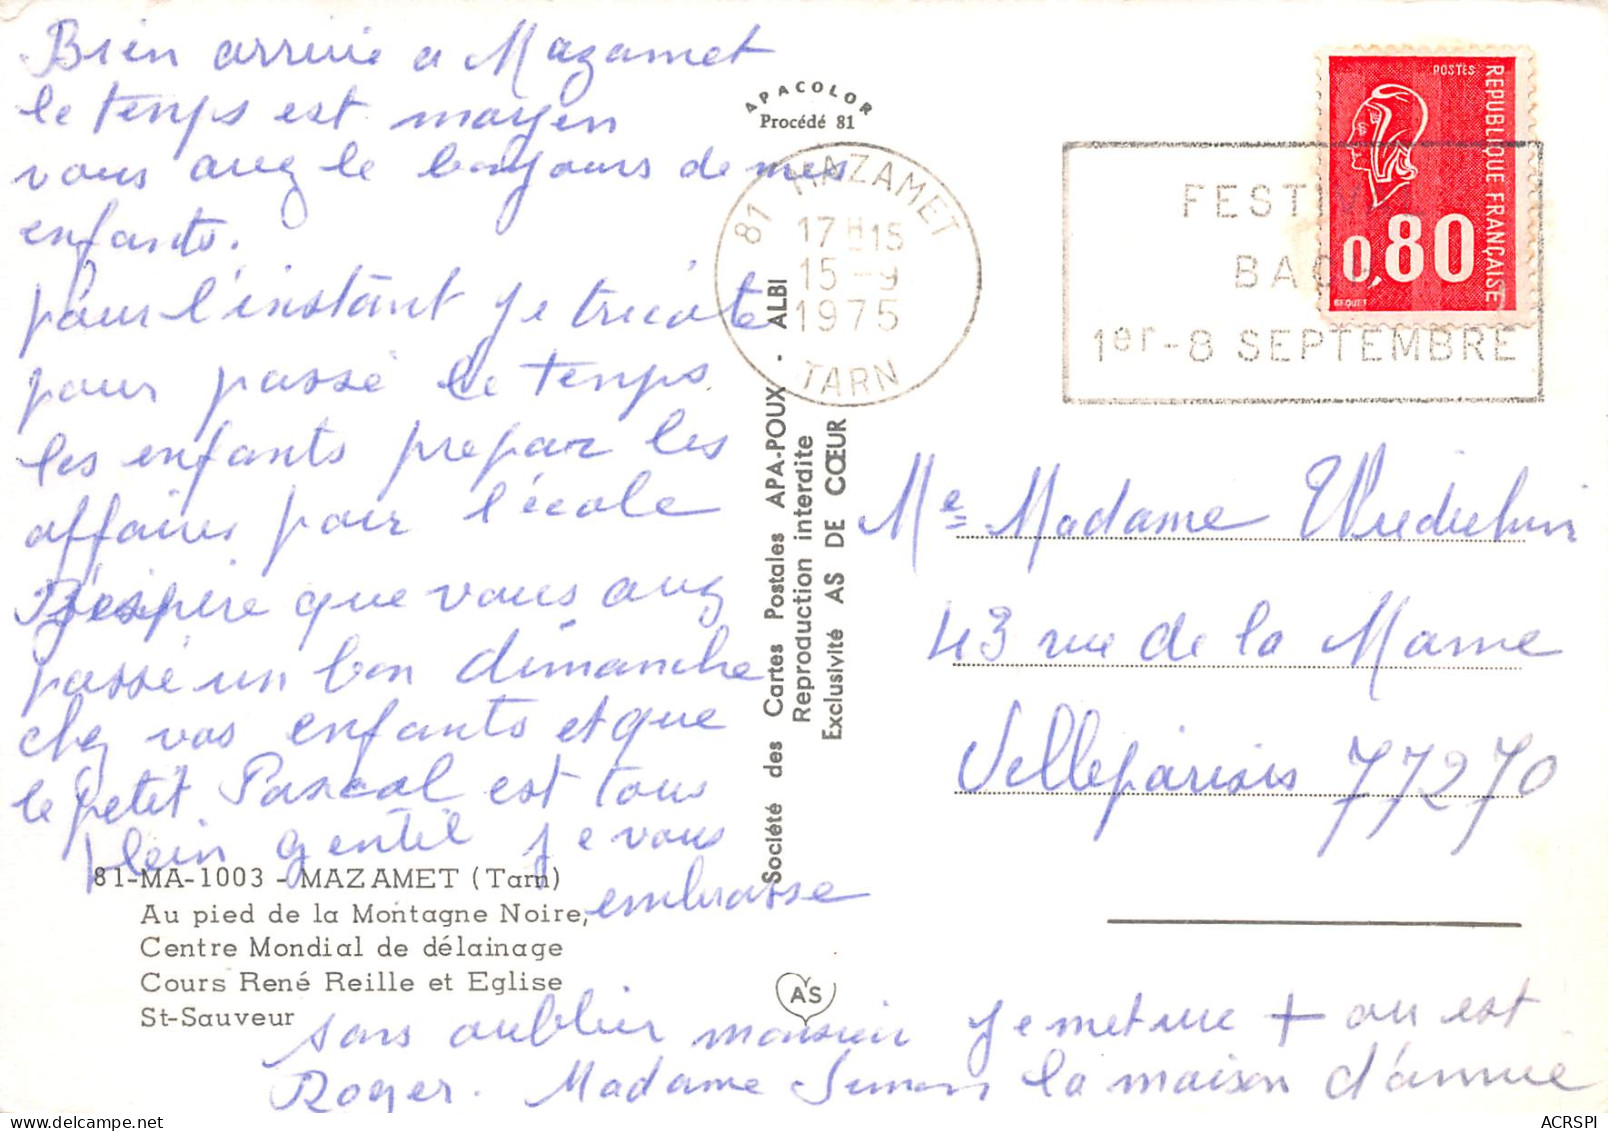 Bien arrivie a Mazamet
le temps est mayen
vous avez le bonjours de mes
enfants.
pour l'instant je tricote
pour passé le temps
les enfants prepar les
affaires pour l'école
J'éspére que vous avez
passé un bon dimanche
chez vos enfants et que
le petit Pascal est tous
plein gentil je vous
embrasse
81-MA-1003 - MAZAMET (Tarn)
Au pied de la Montagne Noire,
Centre Mondial de délainage
Cours René Reille et Eglise
St-Sauveur
sans oublier monsieur
Roger. Madame Simon
je met une + ou est
la maison d'annie
APACOLOR
Procédé 81
Société des Cartes Postales APA-POUX - ALBI
Reproduction interdite
Exclusivité AS DE CŒUR
AS
81 MAZAMET
17 H 15
15-9
1975
TARN
FESTIVAL
BACH
1er-8 SEPTEMBRE
POSTES
REPUBLIQUE FRANÇAISE
0,80
BEQUET
Me Madame
43 rue de la Marne
Villeparisis 77270
ACRSPI